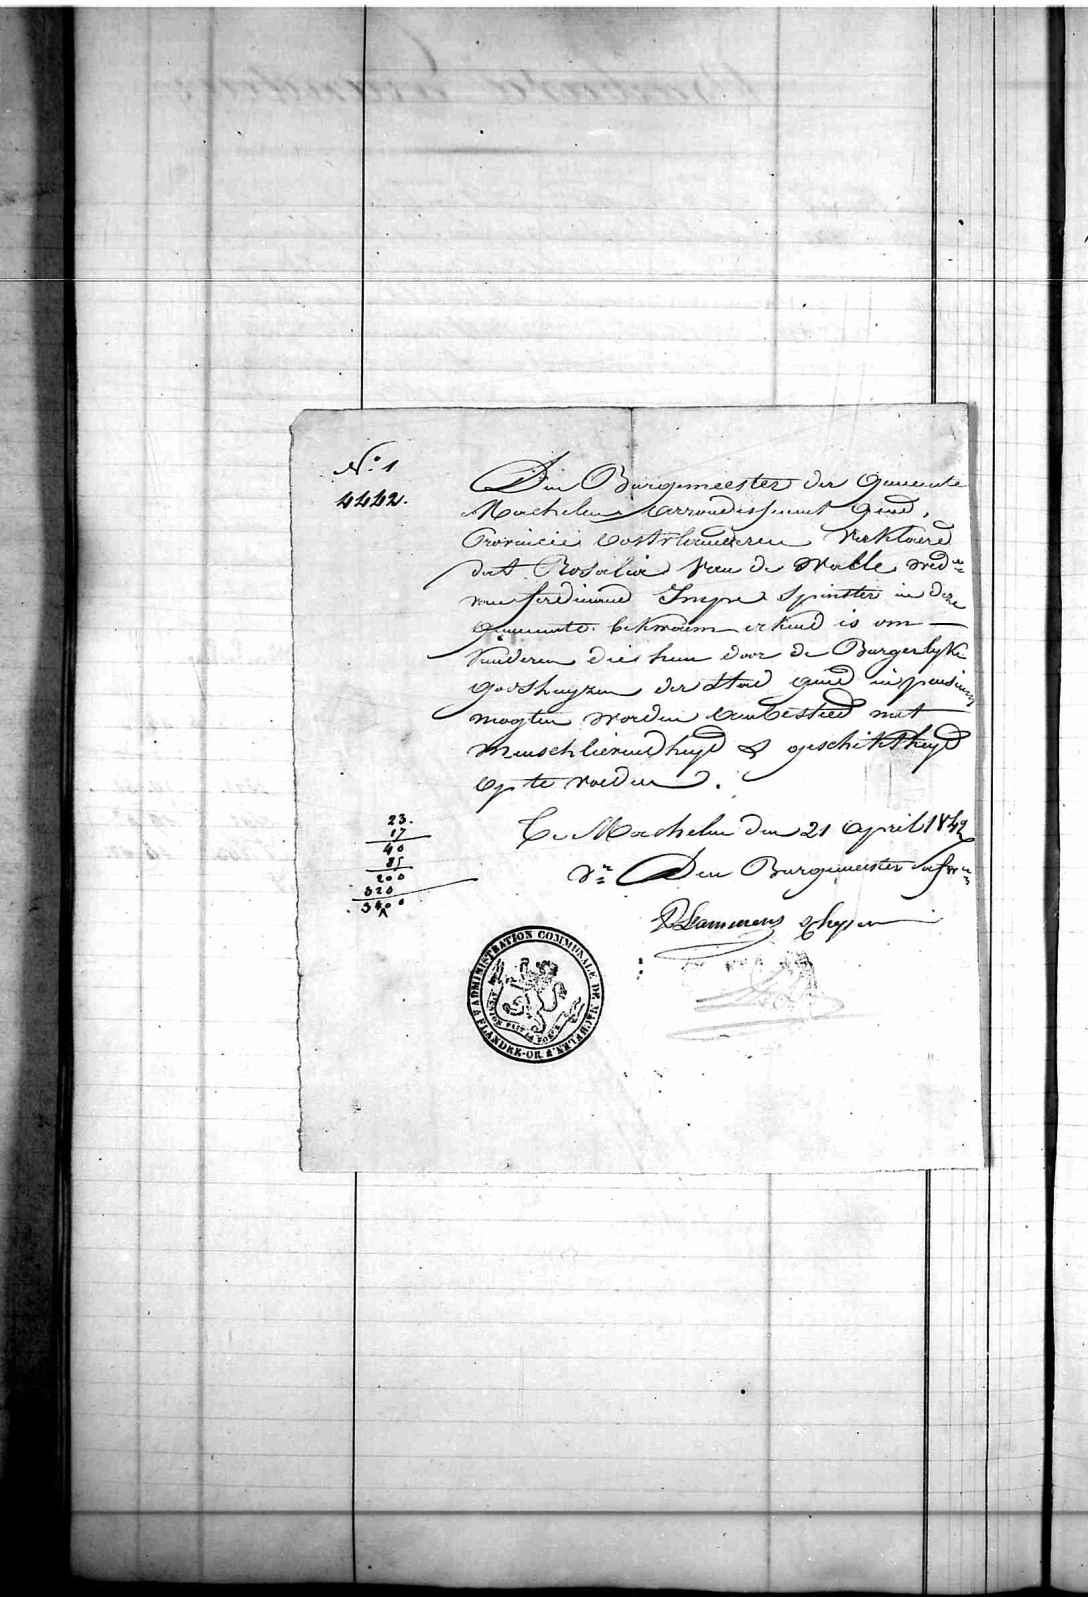 N.º 1
4442.
Den Burgemeester der Gemeente
Machelen arrondissement Gend,
Provincie Oostvlaenderen Verklaerd
dat Rosalia Van de Walle wed.ᵉ
van ferdinand Impe Spinster in deze
Gemeente bekwaem erkend is om
kinderen die hun door de Burgerlyke
Godshuyzen der Stad Gend in pensioen
mogten worden aenbesteed met
menschlievendheyd & geschiktheyd
op te voeden.
23.
17
40
85
200
320
3400
Te Machelen den 21 April 1842
Den Burgemeester
Lammens
ADMINISTRATION COMMUNALE DE MACHELEN, D. FLANDRE-OR.
L'UNION FAIT LA FORCE